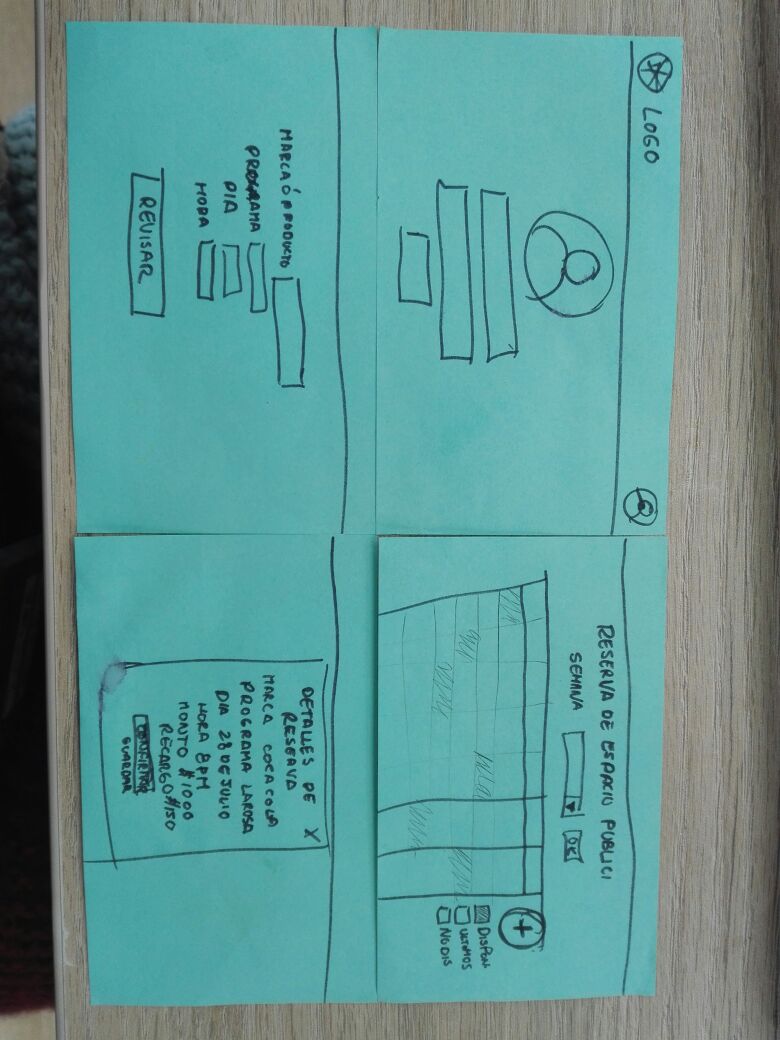 LOGO
RESERVA DE ESPACIO PUBLICI
SEMANA
OK
+
DISPON.
ULTIMOS
NO DIS
MARCA Ó PRODUCTO
PROGRAMA
DIA
HORA
REVISAR
DETALLES DE X
RESERVA
MARCA COCACOLA
PROGRAMA LAROSA
DIA 28 DE JULIO
HORA 8PM
MONTO $1000
RECARGO $150
CONFIRMAR
GUARDAR